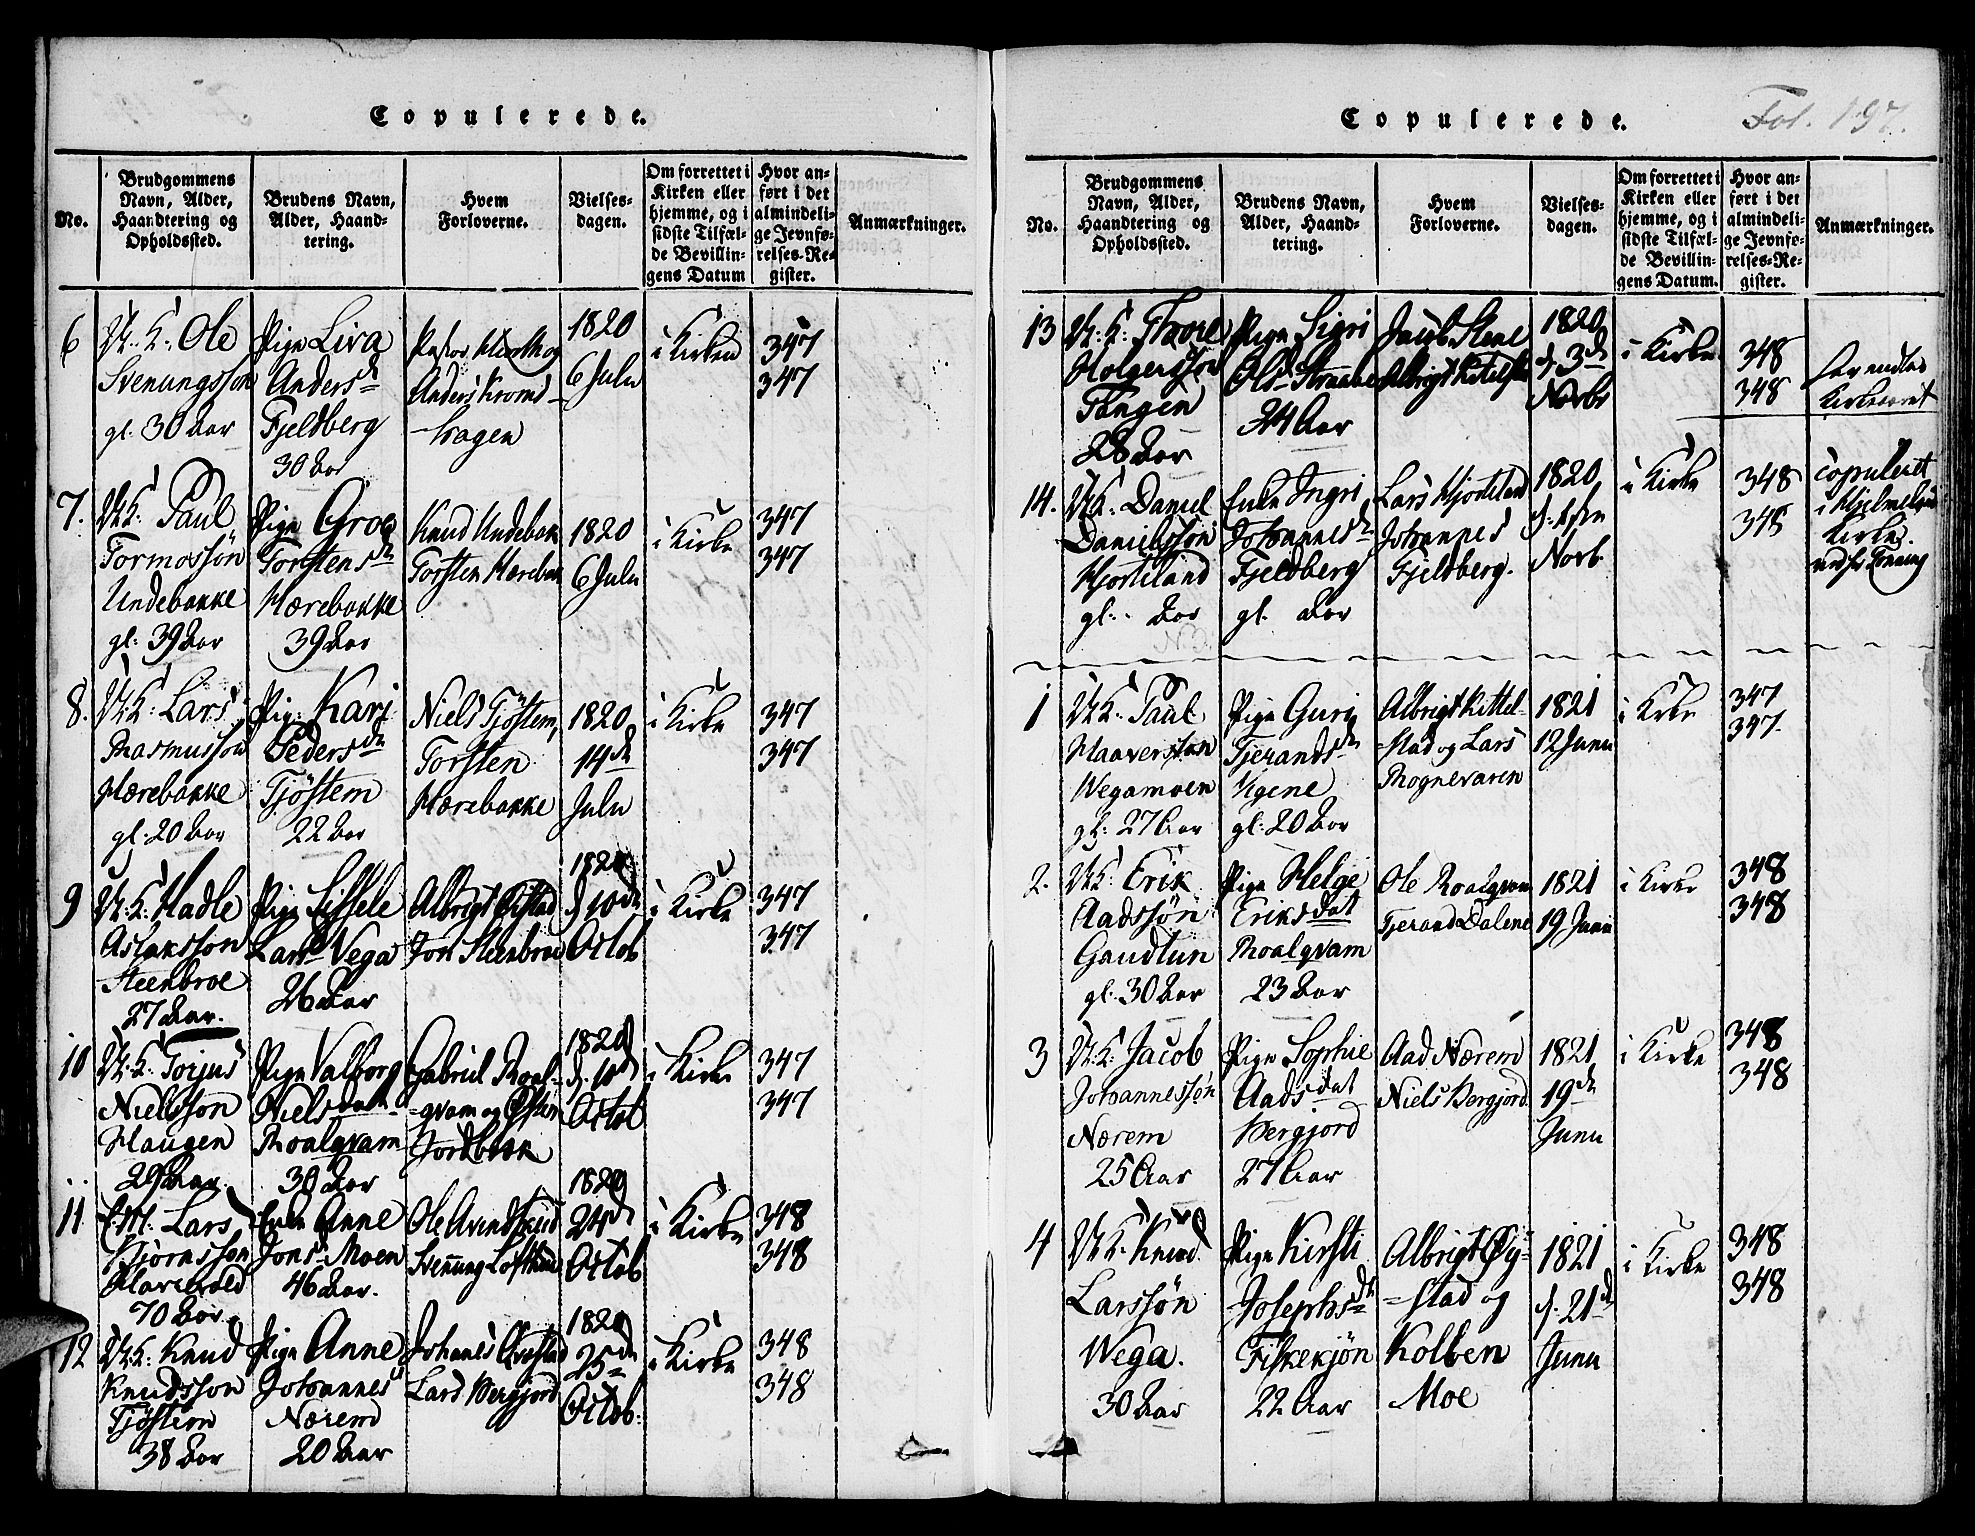 Copulerede.
No.
Brudgommens Navn, Alder, Haandtering og Opholdssted.
Brudens Navn, Alder, Haandtering.
Hvem Forloverne.
Vielsesdagen.
Om forrettet i Kirken eller hjemme, og i sidste Tilfælde Bevillingens Datum
Hvor anført i det almindelige Jevnførelses-Register.
Anmærkninger.
6
U. K. Ole
Svenungssøn
gl. 30 Aar
Pige Liva
Andersd
Fjeldberg
30 Aar
Pastor Hiorth og
Anders Kroms-
-hagen
1820
6 July
i Kirken
347
347
7.
U.K. Paul
Tormossøn
Undebakke
gl. 39 Aar
Pige Groe
Torstensdr
Hærebakke
39 Aar
Knud Undebak
Torsten Hærebak
1820
6 July
i Kirke
347
347
8.
U.K. Lars
Rasmussøn
Hærebakke
gl. 20 Aar
Pig. Kari
Pedersdr
Tjøstem
22 Aar
Niels Tjøstem,
Torsten
Hærebakke
1820
14de
July
i Kirke
347
347
9
U.K. Hadle
Aslakssøn
Steenbroe
27 Aar.
Pige Sissele
Larsd Vega
26 Aar
Albrigt Øistad
Jon Steenbroe
1820
d 10de
Octob
i Kirke
347
347
10
U.K. Torjus
Nielssøn
Haugen
29 Aar.
Pige Valborg
Nielsdatr
Roalqvam
30 Aar
Gabriel Roal-
-qvam og Østen
Jordbræk
1820
d. 10d
Octob
i Kirke
347
347
11
E.M. Lars
Bjørnssøn
70 Aar.
Enke Anne
Jonsd Moen
46 Aar.
Svennung Lofthuus
1820
24d
Octob
i Kirke
348
348
12
U.K. Knud
Knudssøn
Tjøstem
38 Aar
Pige Anne
Johannesd
Nærem
20 Aar
Johanes Qvæstad
Lars Bergjord
1820
25de
Octob.
i Kirke
348
348
Copulerede.
Fol. 197.
No.
Brudgommens Navn, Alder, Haandtering og Opholdssted.
Brudens Navn, Alder, Haandtering.
Hvem Forloverne.
Vielsesdagen.
Om forrettet i Kirken eller hjemme, og i sidste Tilfælde Bevillingens Datum.
Hvor anført i det almindelige Jevnførelses-Register.
Anmærkninger.
13
U. K. Thore
Holgerssøn
Tangen
28 Aar
Pige Sigri
24 Aar
Jacob Stene
1820
d 3de
Novbr
i Kirke
348
348
14.
U.K. Daniel
Danielssøn
Hjorteland
gl. Aar
Enke Ingri
Johannesdr
Fjeldberg
gl. Aar
Lars Hjorteland
Johannes
Fjeldberg.
1820
Novb
i Kirke
348
348
copuleret
i Hjelmeland
Kirke.
1
U.K. Paul
Haaverssøn
Wegamoen
gl. 27 Aar
Pige Guri
Tjerandsdr
gl. 20 Aar
Albrigt Kittel-
-stad og Lars
Rognevaren
1821
12 Juny
i Kirke
347
347.
2.
U.K. Erik
Aadssøn
Gautun
gl. 30 Aar
Pige Helge
Eriksdat
Roalqvam
23 Aar
Ole Roalqvam
Tjerand Dalene
1821
19 Juni
i Kirke
348
348
3
U.K. Jacob
Johannessøn
Nærem
25 Aar
Pige Sophie
Aadsdat
Bergjord
27 Aar
Aad Nærem
Niels Bergjord
1821
19de
Juny
i Kirke
348
348
4
U.K. Knud
Larssøn
Wega.
30 Aar
Pige Kirsti
Josephsdr
Fiskekjøn
22 Aar
Albrigt Øy-
-stad og
Kolben
Moe
1821
d. 21d
Juny
i Kirke
348
348